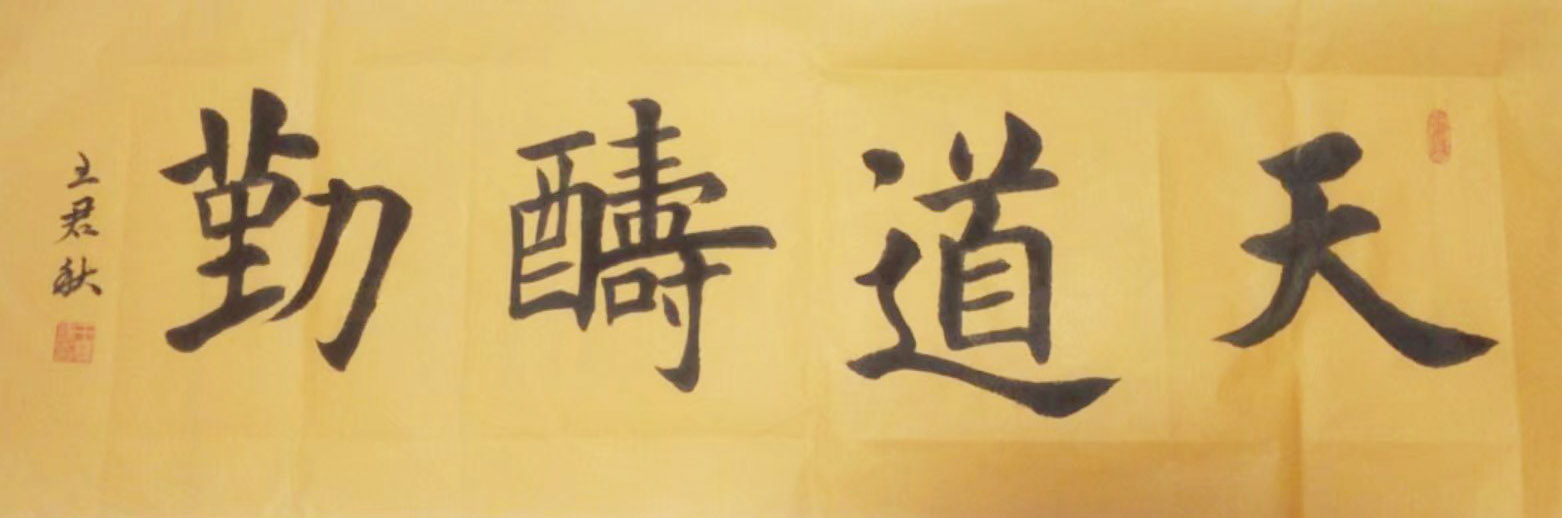 天道醻勤
王君秋